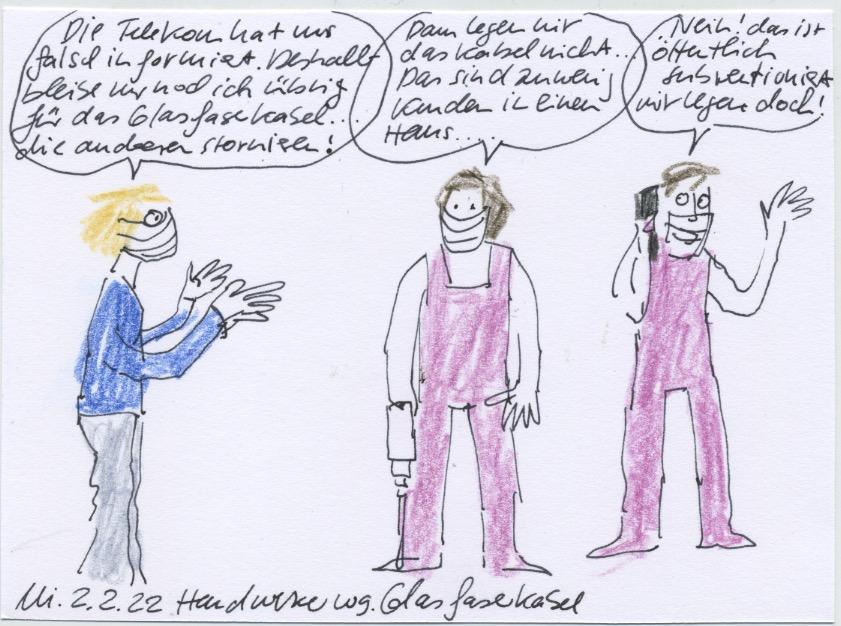 Die Telekom hat uns
falsch informiert. Deshalb
bleibe nur noch ich übrig
für das Glasfaserkabel...
die anderen stornieren!
Dann legen wir
das Kabel nicht...
Das sind zu wenig
Kunden in einem
Haus....
Nein! das ist
öffentlich
subventioniert
wir legen doch!
Mi. 2.2.22 Handwerker wg. Glasfaserkabel